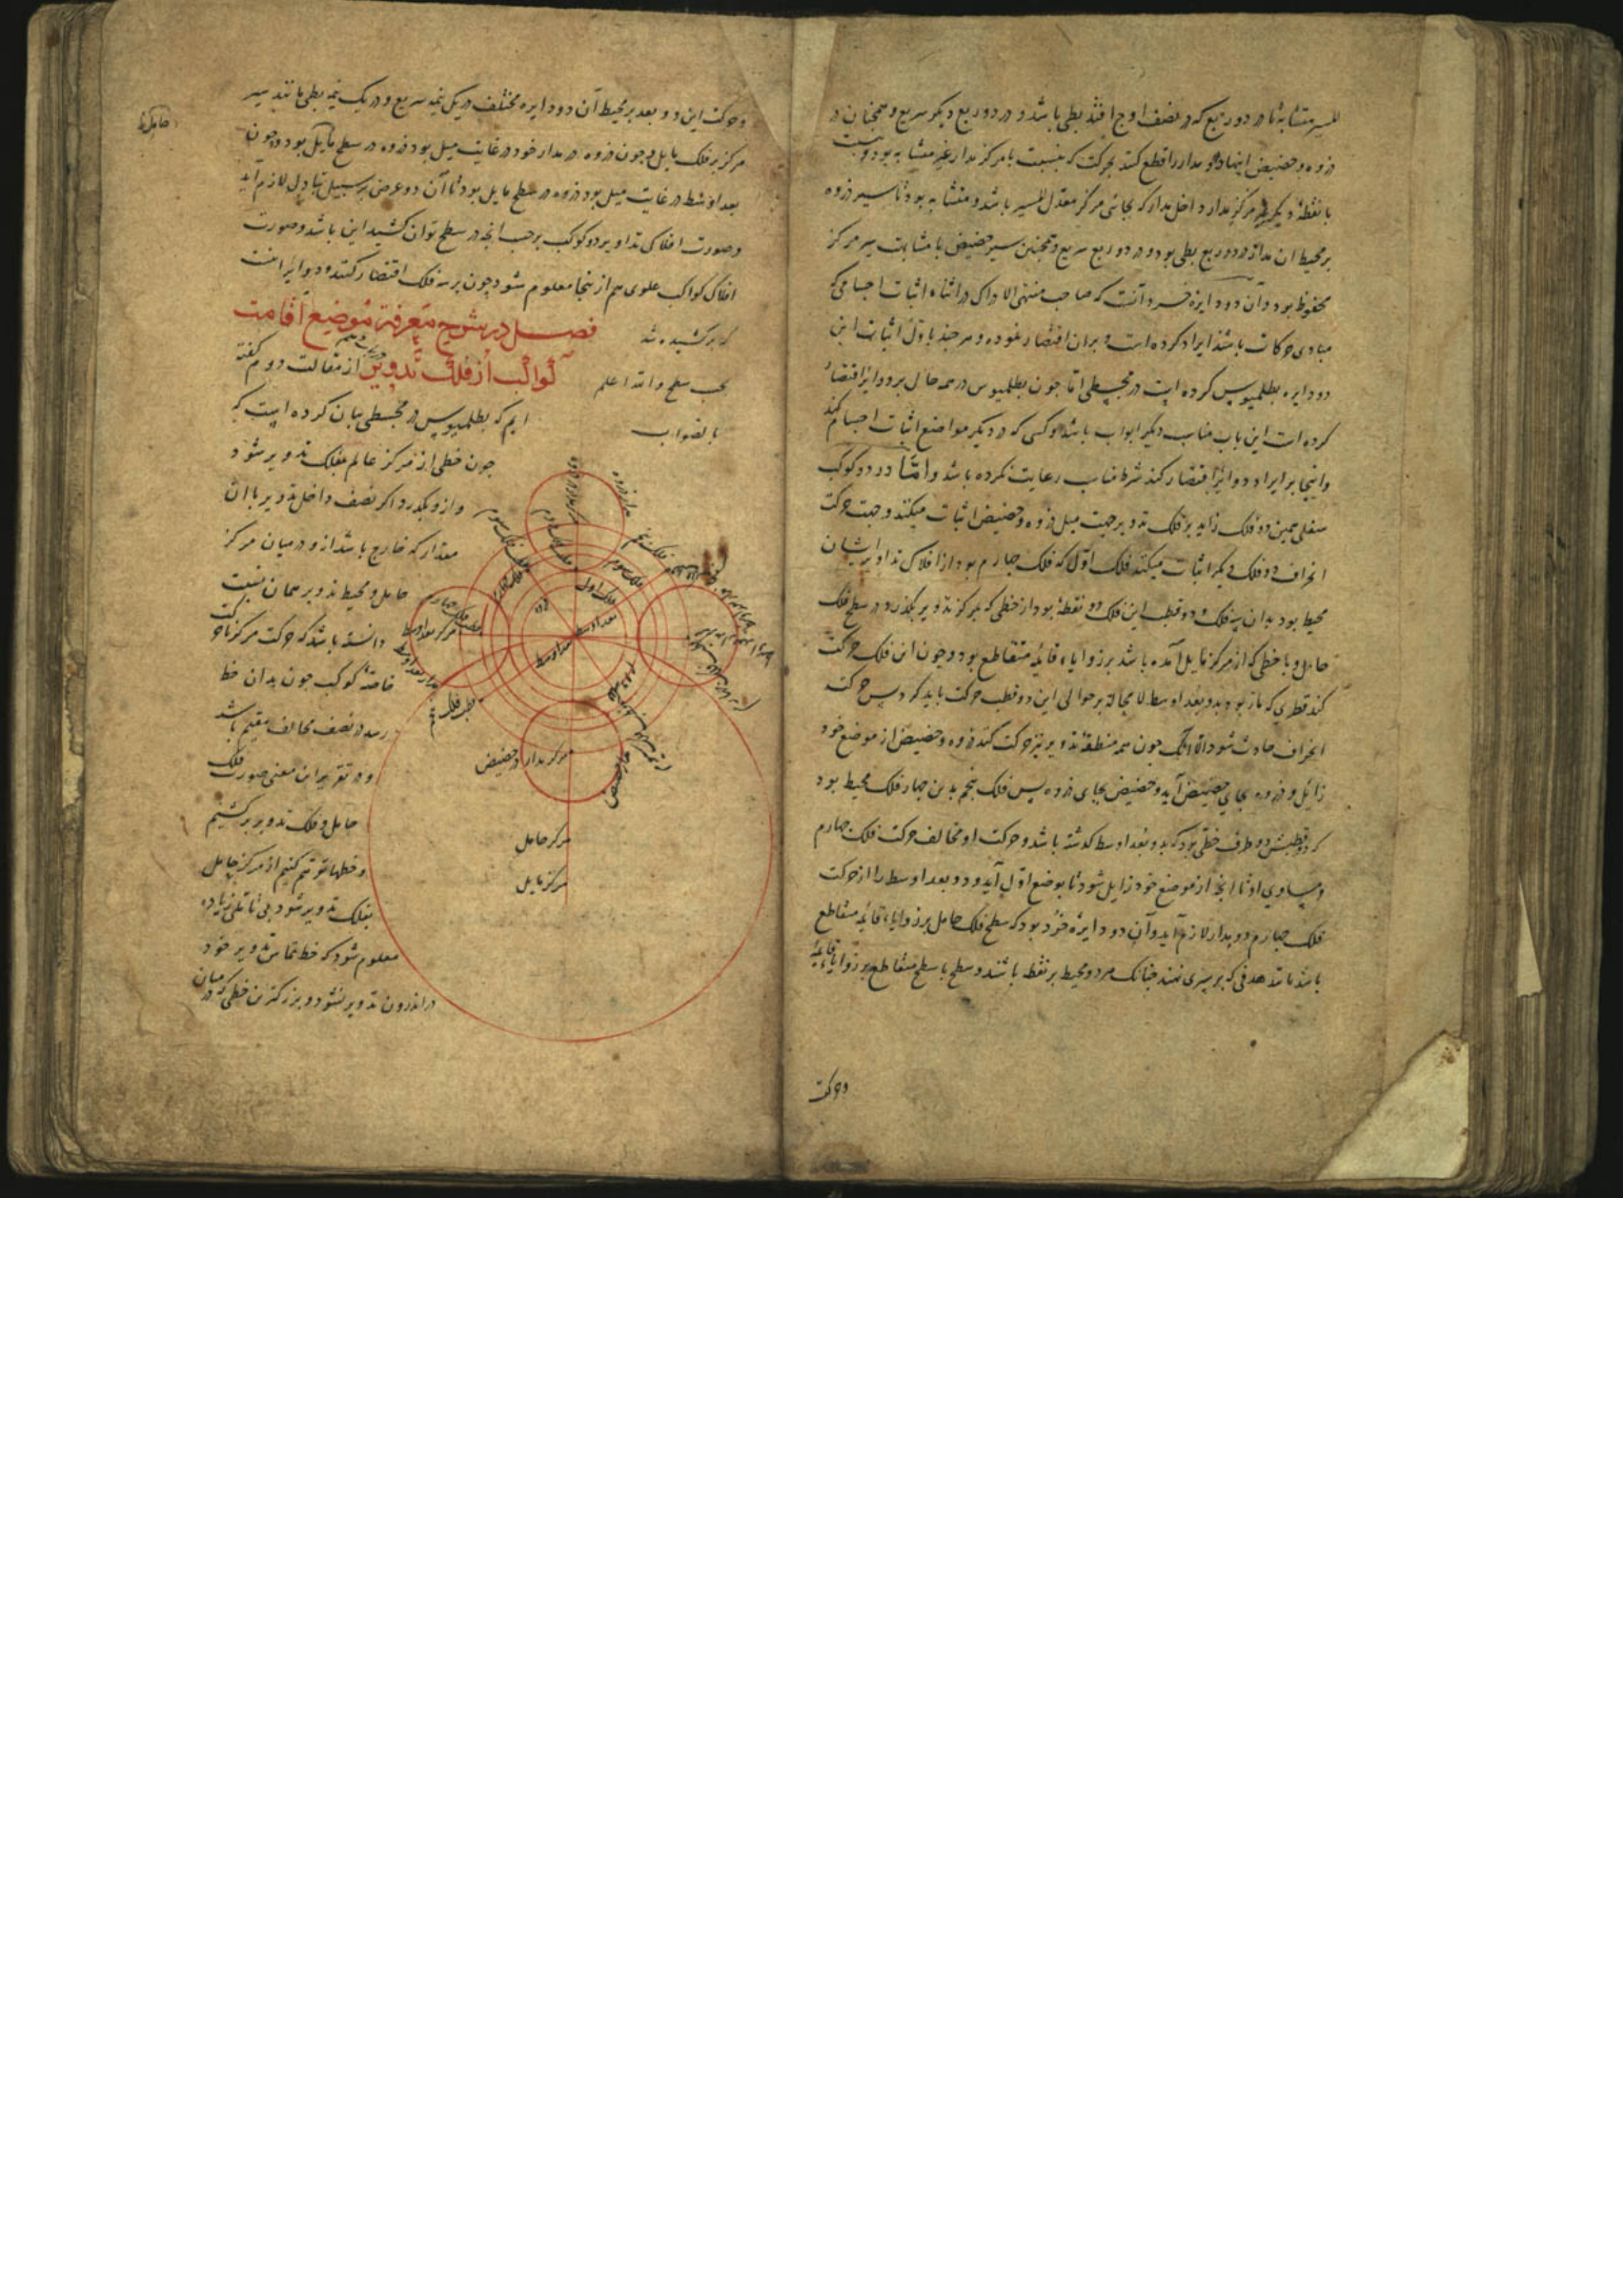 المسیر متشابه تا در دو ربع که در نصف اوج افتد بطی باشد و در دو ربع دیگر سریع و همچنان در
ذروه و حضیض اینها دو مدار را قطع کند بحرکت که بنسبت با مرکز مدار غیر متشابه بود و بنسبت
با نقطهٔ دیگر غیر مرکز مدار داخل مدار که بجای مرکز معدل المسیر باشد متشابه بود تا سیر ذروه
بر محیط ان مدار در دو ربع بطی بود و در دو ربع سریع و همچنین سیر حضیض با مشابهت سیر مرکز
محفوظ بود و آن دو دایره خرد آنست که صاحب منتهی الادراک در اثناء اثبات اجسامی که
مبادی حرکات باشد ایراد کرده است و بران اقتصار نموده و هر چند باول اثبات این
دو دایره بطلمیوس کرده است در مجسطی اما چون بطلمیوس در همه حال بر دوایر اقتصار
کرده است این باب مناسب دیگر ابواب باشد و کسی که در دیگر مواضع اثبات اجسام کند
و اینجا بر ایراد دوایر اقتصار کند شرط مناسب رعایت نکرده باشد و اما در دو کوکب
سفلی همین دو فلک زاید بر فلک تدویر جهت میل ذروه و حضیض اثبات میکند و جهت حرکت
انحراف دو فلک دیگر اثبات میکند فلک اول که فلک چهارم بود از افلاک تداویر ایشان
محیط بود بدان سه فلک و دو قطب این فلک دو نقطه بود از خطی که بمرکز تدویر بگذرد و در سطح فلک
حامل و با خطی که از مرکز مایل آمده باشد بر زوایاء قائمه متقاطع بود و چون این فلک حرکت
کند قطری که مار بود بدو بعد اوسط لا محاله بر حوالی این دو قطب حرکت باید کرد پس حرکت
انحراف حادث شود الا انک چون همه منطقه تدویر نیز حرکت کند ذروه و حضیض از موضع خود
زائل و ذروه بجای حضیض آید و حضیض بجای ذروه پس فلک پنجم بدین چهار فلک محیط بود
که دو قطبش دو طرف خطی بود که بدو بعد اوسط گذشته باشد و حرکت او مخالف حرکت فلک چهارم
و مساوی او تا انچ از موضع خود زایل شود تا بوضع اول آید و دو بعد اوسط را از حرکت
فلک چهارم دو مدار لازم آید و آن دو دایره خرد بود که سطح فلک حامل بر زوایاء قائمه متقاطع
باشد مانند هدفی که بر سپری نهند چنانک هر دو محیط بر نقطه باشند و سطح با سطح متقاطع بر زوایا قایمه
و حرکت
و حرکت این دو بعد بر محیط آن دو دایره مختلف در یک نیمه سریع و در یک نیمه بطی مانند سیر
مرکز بر فلک مایل و چون ذروه در مدار خود در غایت میل بود ذروه در سطح مایل بود و چون
بعد اوسط در غایت میل بود ذروه در سطح مایل بود تا آن دو عرض بر سبیل تبادل لازم آید
و صورت افلاک تداویر دو کوکب بر حسب انچه در سطح توان کشید این باشد و صورت
افلاک کواکب علوی هم از ینجا معلوم شود چون بر سه فلک اقتصار کنند و دوایر اینست
که بر کشیده شد
بحسب سطح و الله اعلم
بالصواب
فصل در شرح معرفة موضع اقامت
کواکب از فلک تدویر از مقالت دوم گفته
ایم که بطلمیوس در مجسطی بیان کرده است که
چون خطی از مرکز عالم بفلک تدویر شود
و ازو بگذرد اگر نصف داخل تدویر با ان
مقدار که خارج باشد از و در میان مرکز
حامل و محیط تدویر همان نسبت
دانسته باشد که حرکت مرکز با حرکت
خاصهٔ کوکب چون بدان خط
رسد در نصف مخالف مقیم باشد
و در تقریر این معنی صورت فلک
حامل و فلک تدویر بر کشیم
و خطها توهم کنیم از مرکز حامل
بفلک تدویر شود بی تاملی زیاده
معلوم شود که خط مماس تدویر خود
در اندرون تدویر نشود و بزرگترین خطی که در میان
فلک اول
فلک سوم
فلک پنجم
بعد اوسط
بعد اوسط
مدار ذروه
مرکز بعد اوسط
مدار بعد اوسط
مرکز مدار حضیض
مدار حضیض
مرکز حامل
مرکز مایل